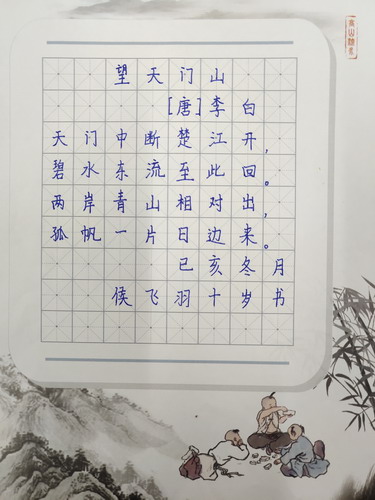 望天门山
[唐]李白
天门中断楚江开，
碧水东流至此回。
两岸青山相对出，
孤帆一片日边来。
已亥冬月
侯飞羽十岁书